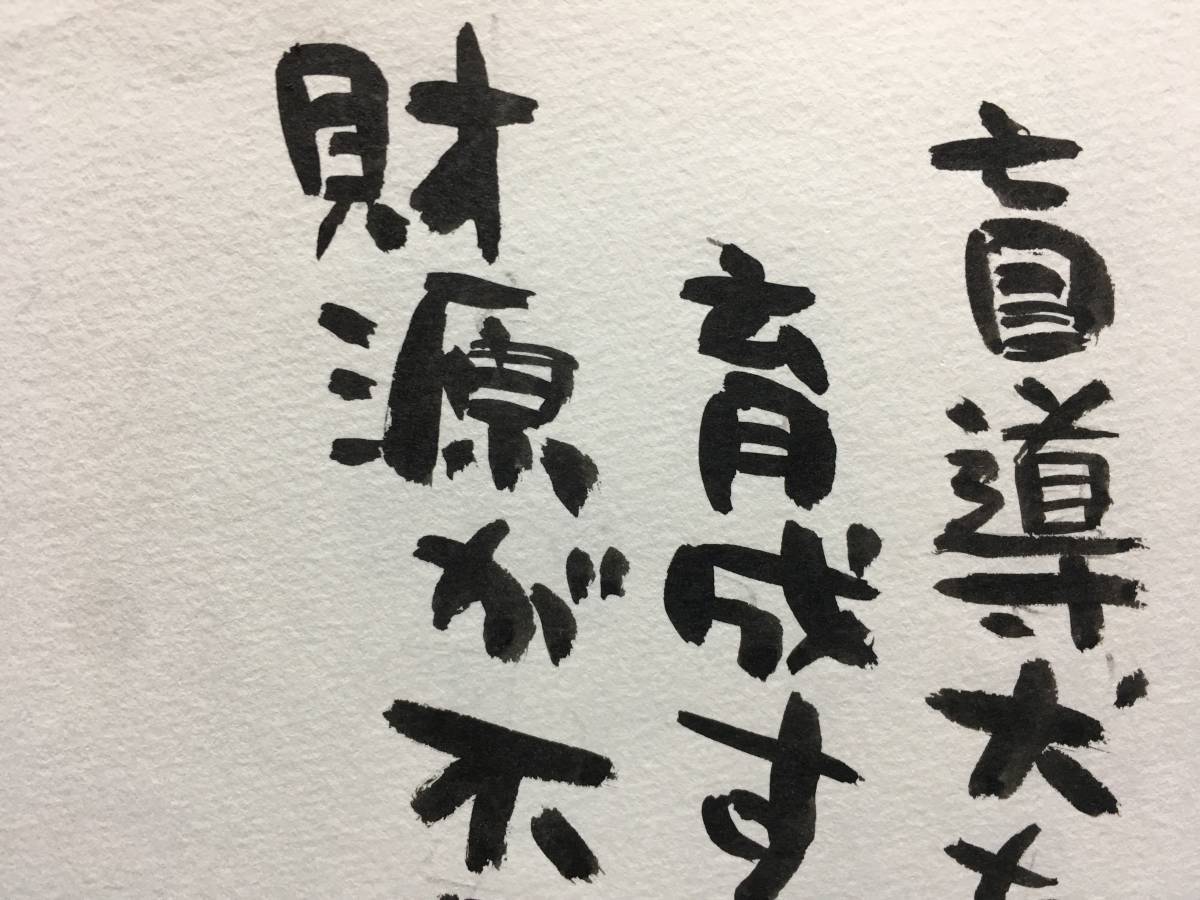 盲導犬
育成す
財源が不